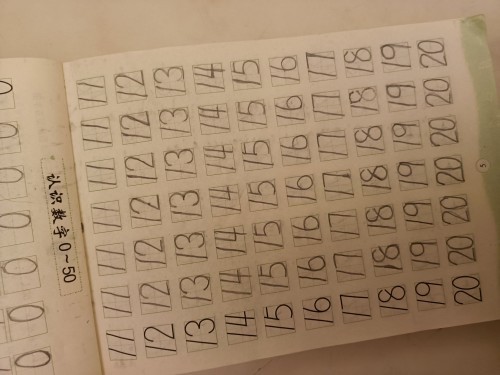 0
0
0
0
0
0
0
认识数字0~50
11 12 13 14 15 16 17 18 19 20
11 12 13 14 15 16 17 18 19 20
11 12 13 14 15 16 17 18 19 20
11 12 13 14 15 16 17 18 19 20
11 12 13 14 15 16 17 18 19 20
11 12 13 14 15 16 17 18 19 20
11 12 13 14 15 16 17 18 19 20
5